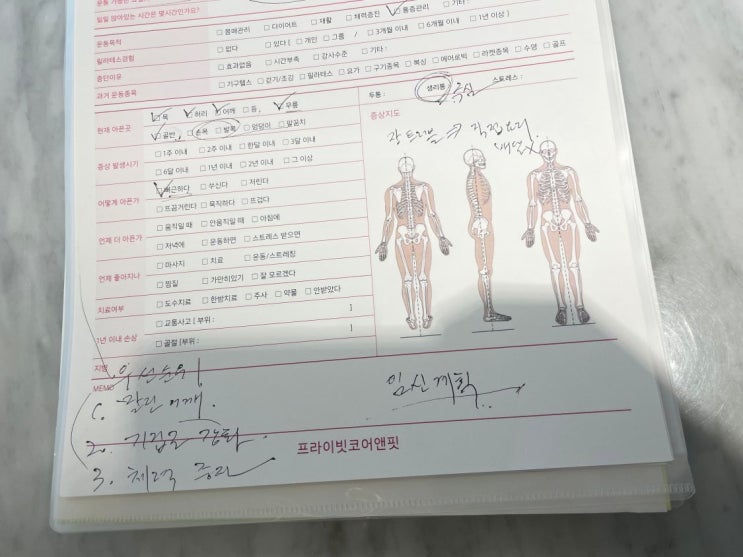 하루 앉아있는 시간은 몇시간인가요?
운동목적 □ 몸매관리 □ 다이어트 □ 재활 □ 체력증진 □ 통증관리 □ 기타 :
필라테스경험 □ 없다 □ 있다 [ □ 개인 □ 그룹 / □ 3개월 이내 □ 6개월 이내 □ 1년 이상 ]
중단이유 □ 효과없음 □ 시간부족 □ 강사수준 □ 기타 :
과거 운동종목 □ 기구헬스 □ 걷기/조깅 □ 필라테스 □ 요가 □ 구기종목 □ 복싱 □ 에어로빅 □ 라켓종목 □ 수영 □ 골프
현재 아픈곳 □ 목 □ 허리 □ 어깨 □ 등, □ 무릎
□ 골반 □ 손목 □ 발목 □ 엉덩이 □ 팔꿈치
두통 : 생리통 : 스트레스 :
증상 발생시기 □ 1주 이내 □ 2주 이내 □ 한달 이내 □ 3달 이내
□ 6달 이내 □ 1년 이내 □ 2년 이내 □ 그 이상
어떻게 아픈가 □ 뻐근하다 □ 쑤신다 □ 저린다
□ 뜨끔거린다 □ 묵직하다 □ 뜨겁다
언제 더 아픈가 □ 움직일 때 □ 안움직일 때 □ 아침에
□ 저녁에 □ 운동하면 □ 스트레스 받으면
언제 좋아지나 □ 마사지 □ 치료 □ 운동/스트레칭
□ 찜질 □ 가만히있기 □ 잘 모르겠다
치료여부 □ 도수치료 □ 한방치료 □ 주사 □ 약물 □ 안받았다
1년 이내 손상 □ 교통사고 [ 부위 : ]
□ 골절 [부위 : ]
증상지도
지병
MEMO
1. 말린 어깨.
2. 기립근 강화.
3. 체력 증진
임신계획
프라이빗코어앤핏